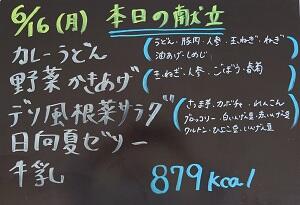 6/16(月) 本日の献立
カレーうどん
(うどん・豚肉・人参・玉ねぎ・ねぎ
油あげ・しめじ)
野菜かきあげ
(玉ねぎ・人参・ごぼう・春菊)
デリ風根菜サラダ
(さつま芋・カボチャ・れんこん
ブロッコリー・白いんげん豆・赤いんげん豆
クルトン・ひよこ豆・いんげん豆)
日向夏ゼリー
牛乳
879kcal